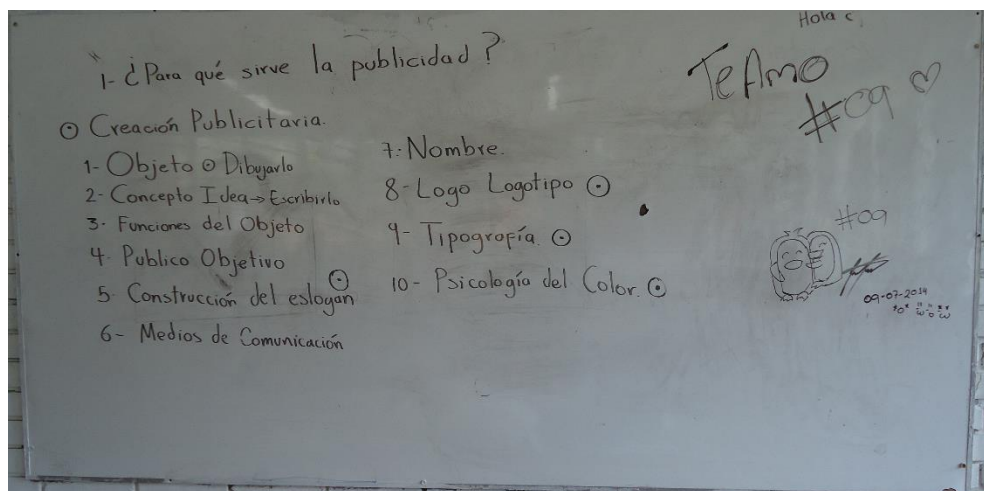 1- ¿Para qué sirve la publicidad?
⊙ Creación Publicitaria.
1- Objeto ⊙ Dibujarlo
2- Concepto Idea → Escribirlo
3- Funciones del Objeto
4- Publico Objetivo
5- Construcción del eslogan ⊙
6- Medios de Comunicación
7- Nombre.
8- Logo Logotipo ⊙
9- Tipografía. ⊙
10- Psicología del Color. ⊙
Hola c
Te Amo
#09 ♡
#09
09-07-2014